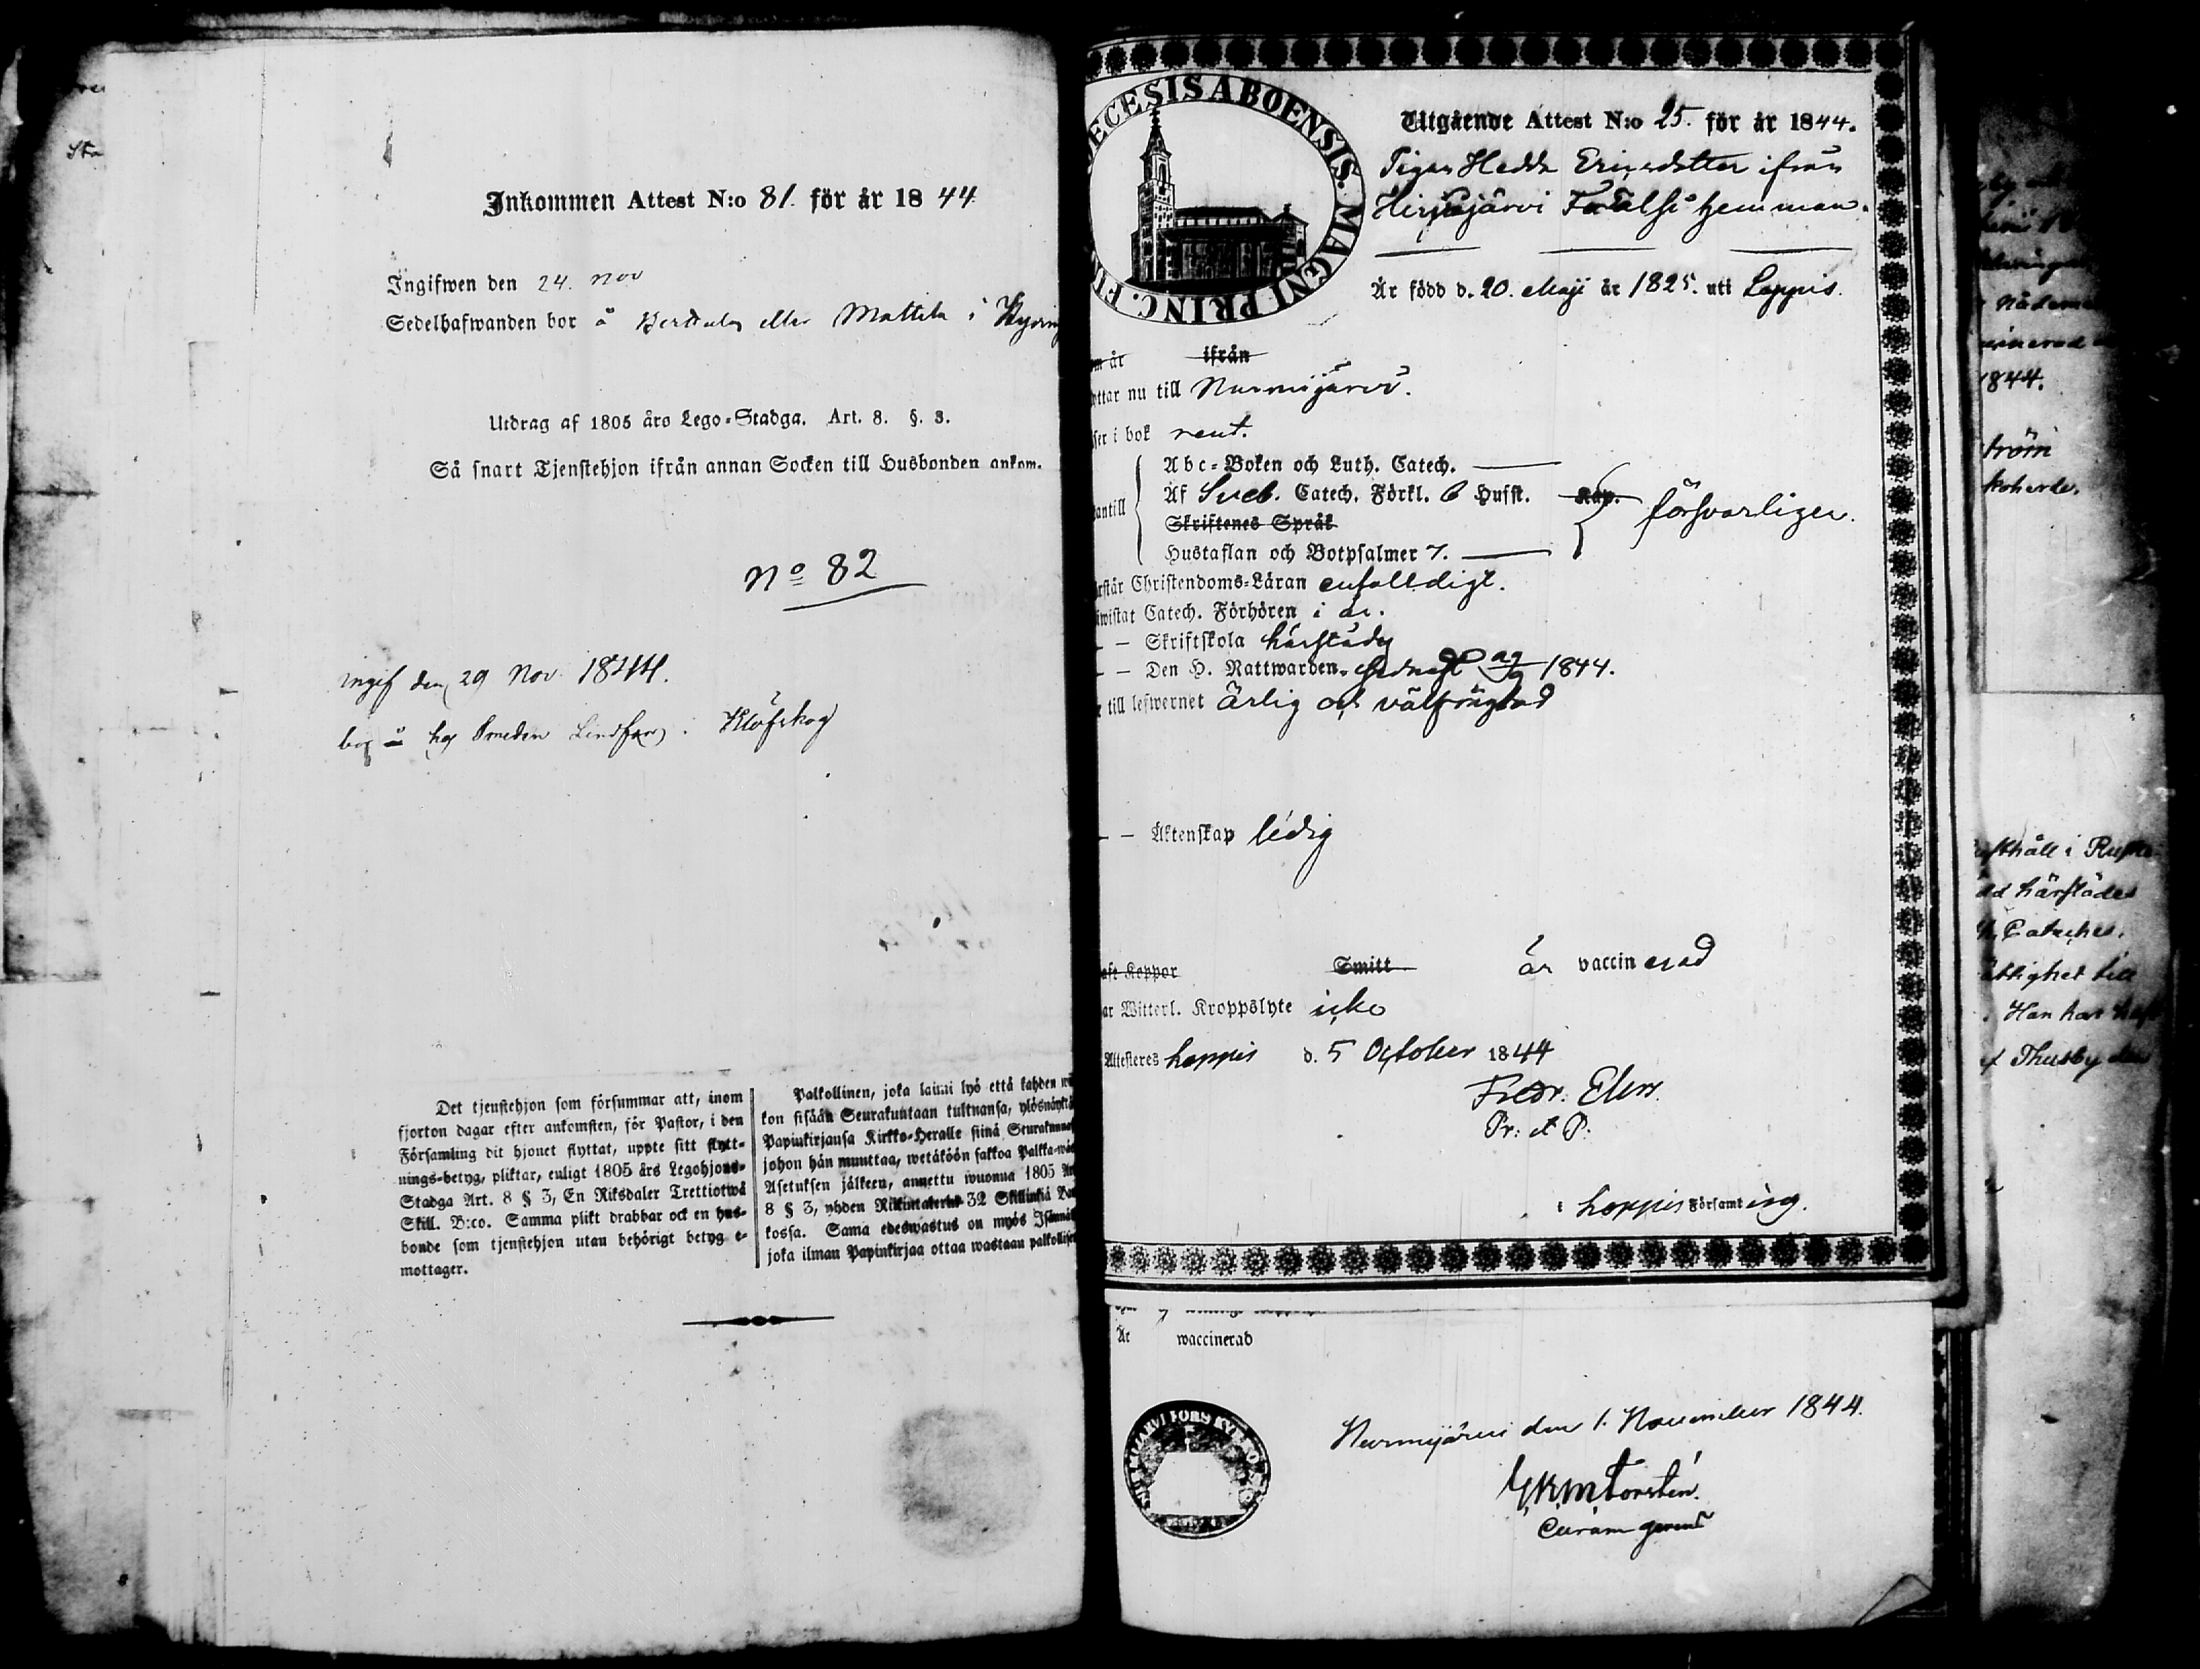 Inkommen Attest N:o 81. för år 1844
Ingifwen den 24. Nov
Sedelhafwanden bor å eller Mattila i
Utdrag af 1805 års Lego-Stadga. Art. 8. §. 3.
Så snart Tjenstehjon ifrån annan Socken till Husbonden ankom.
No 82
ingif den 29 Nov. 1844.
bor å hos Smeden Lindfors i Klöfskog
Det tjenstehjon som försummar att, inom
fjorton dagar efter ankomsten, för Pastor, i den
Församling dit hjonet flyttat, uppte sitt flytt-
nings-betyg, pliktar, enligt 1805 års Legohjons-
Stadga Art. 8 § 3, En Riksdaler Trettiotwå
Skill. B:co. Samma plikt drabbar ock en hus-
bonde som tjenstehjon utan behörigt betyg e-
mottager.
Palkollinen, joka laimi lyö että kahden wii
kon sisään Seurakuntaan tultuansa, ylösnäyttä
Papinkirjansa Kirkko-Herralle siinä Seurakunna
johon hän muuttaa, wetäköön sakkoa Palkka-wä
Asetuksen jälkeen, annettu wuonna 1805 Ar
8 § 3, yhden Riikintalerin 32 Skillinkiä Ban
kossa. Sama edeswastus on myös Isännäl
joka ilman Papinkirjaa ottaa wastaan palkollisen
ECESIS ABOENSIS. MAGNI PRINC. FI
Utgående Attest N:o 25. för år 1844.
Pigan Hedda Ericsdotter ifrån
Hirsjärvi hemman.
Är född d. 20. Maji år 1825. uti Loppis.
om år ifrån
yttar nu till Nurmijärvi.
ser i bok rent.
Abc-Boken och Luth. Catech.
antill Af Sveb. Catech. Förkl. 6 Hufst. Kap. försvarligen.
Skriftenes Språk
Hustaflan och Botpsalmer 7.
rstår Christendoms-Läran enfalldigt.
wistat Catech. Förhören i år.
– – Skriftskola härstädes
– – Den H. Nattwarden. sednast 1844.
till lefwernet ärlig och välfrägdad
– – Äktenskap ledig
aft Koppor Smitt är vaccinerad
ar Witterl. Kroppslyte icke
Attesteres Loppis d. 5 October 1844
Fredr. Elers.
Pr: et P:
i Loppis Församling.
Är waccinerad
Nurmijärvi den 1. November 1844.
Torstén.
Curam gerens
by
1844.
ström
kyrkoherde.
usthåll i
dd härstädes
Cateches.
ättighet till
. Han har haft
Thusby den